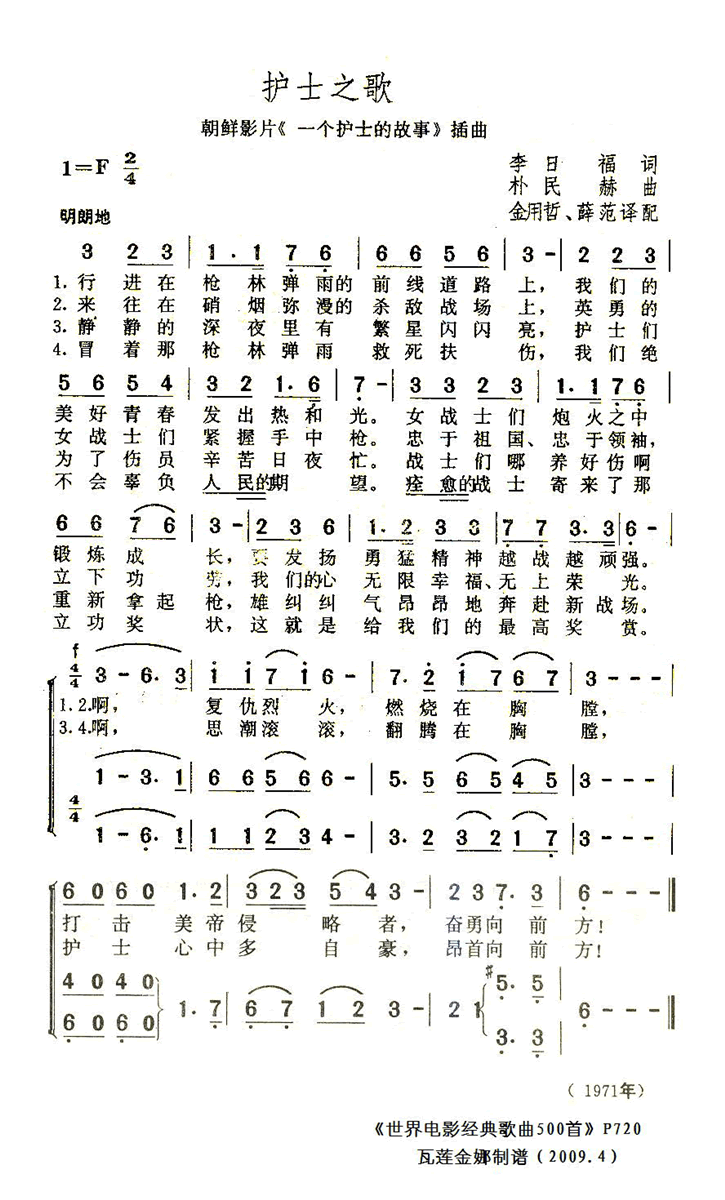 护士之歌
朝鲜影片《一个护士的故事》插曲
1=F 2/4
李日福词
朴民赫曲
明朗地
金用哲、薛范译配
3 2 3 | 1 . 1 7 6 | 6 6 5 6 | 3 - | 2 2 3 |
1.行 进在 枪 林弹雨的 前线道路 上，我们的
2.来 往在 硝 烟弥漫的 杀敌战场 上，英勇的
3.静 静的 深 夜里有 繁星闪闪 亮，护士们
4.冒 着那 枪 林弹雨 救死扶 伤，我们绝
5 6 5 4 | 3 2 1 . 6 | 7 - | 3 3 2 3 | 1 . 1 7 6 |
美好青春 发出热和 光。女战士们 炮火之中
女战士们 紧握手中 枪。忠于祖国、忠于领袖，
为了伤员 辛苦日夜 忙。战士们哪 养好伤啊
不会辜负 人民的期 望。痊愈的战士 寄来了那
6 6 7 6 | 3 - | 2 3 6 | 1 . 2 3 3 | 7 7 3 . 3 | 6 - |
锻炼成 长，要发扬 勇猛精神 越战越顽强。
立下功 劳，我们的心 无限幸福、无上荣光。
重新拿起 枪，雄纠纠 气昂昂地奔赴新战场。
立功奖 状，这就是 给我们的最高奖赏。
f
4/4 3 - 6 . 3 | 1 1 7 1 6 - | 7 . 2 1 7 6 7 | 3 - - - |
1.2.啊， 复仇烈火， 燃烧在胸膛，
3.4.啊， 思潮滚滚， 翻腾在胸膛，
1 - 3 . 1 | 6 6 5 6 6 - | 5 . 5 6 5 4 5 | 3 - - - |
4/4 1 - 6 . 1 | 1 1 2 3 4 - | 3 . 2 3 2 1 7 | 3 - - - |
6 0 6 0 1 . 2 | 3 2 3 5 4 3 - | 2 3 7 . 3 | 6 - - - ‖
打击美帝侵略者，奋勇向前方！
护士心中多自豪，昂首向前方！
4 0 4 0 #5 . 5
1 . 7 | 6 7 1 2 3 - | 2 1 6 - - - ‖
6 0 6 0 3 . 3
（1971年）
《世界电影经典歌曲500首》P720
瓦莲金娜制谱（2009.4）